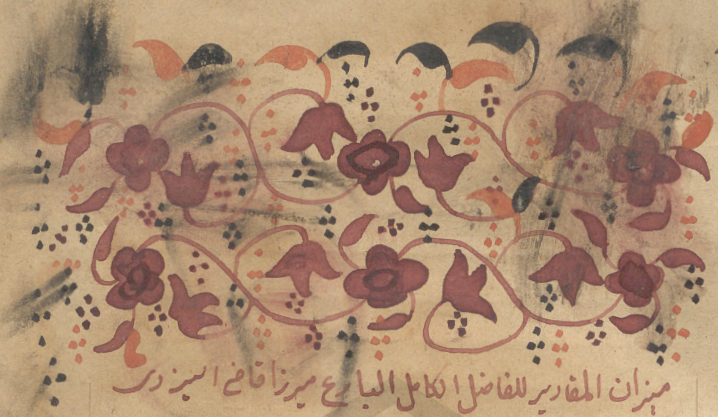 ميزان المقادير للفاضل الكامل البارع ميرزا قاضي اليزدى